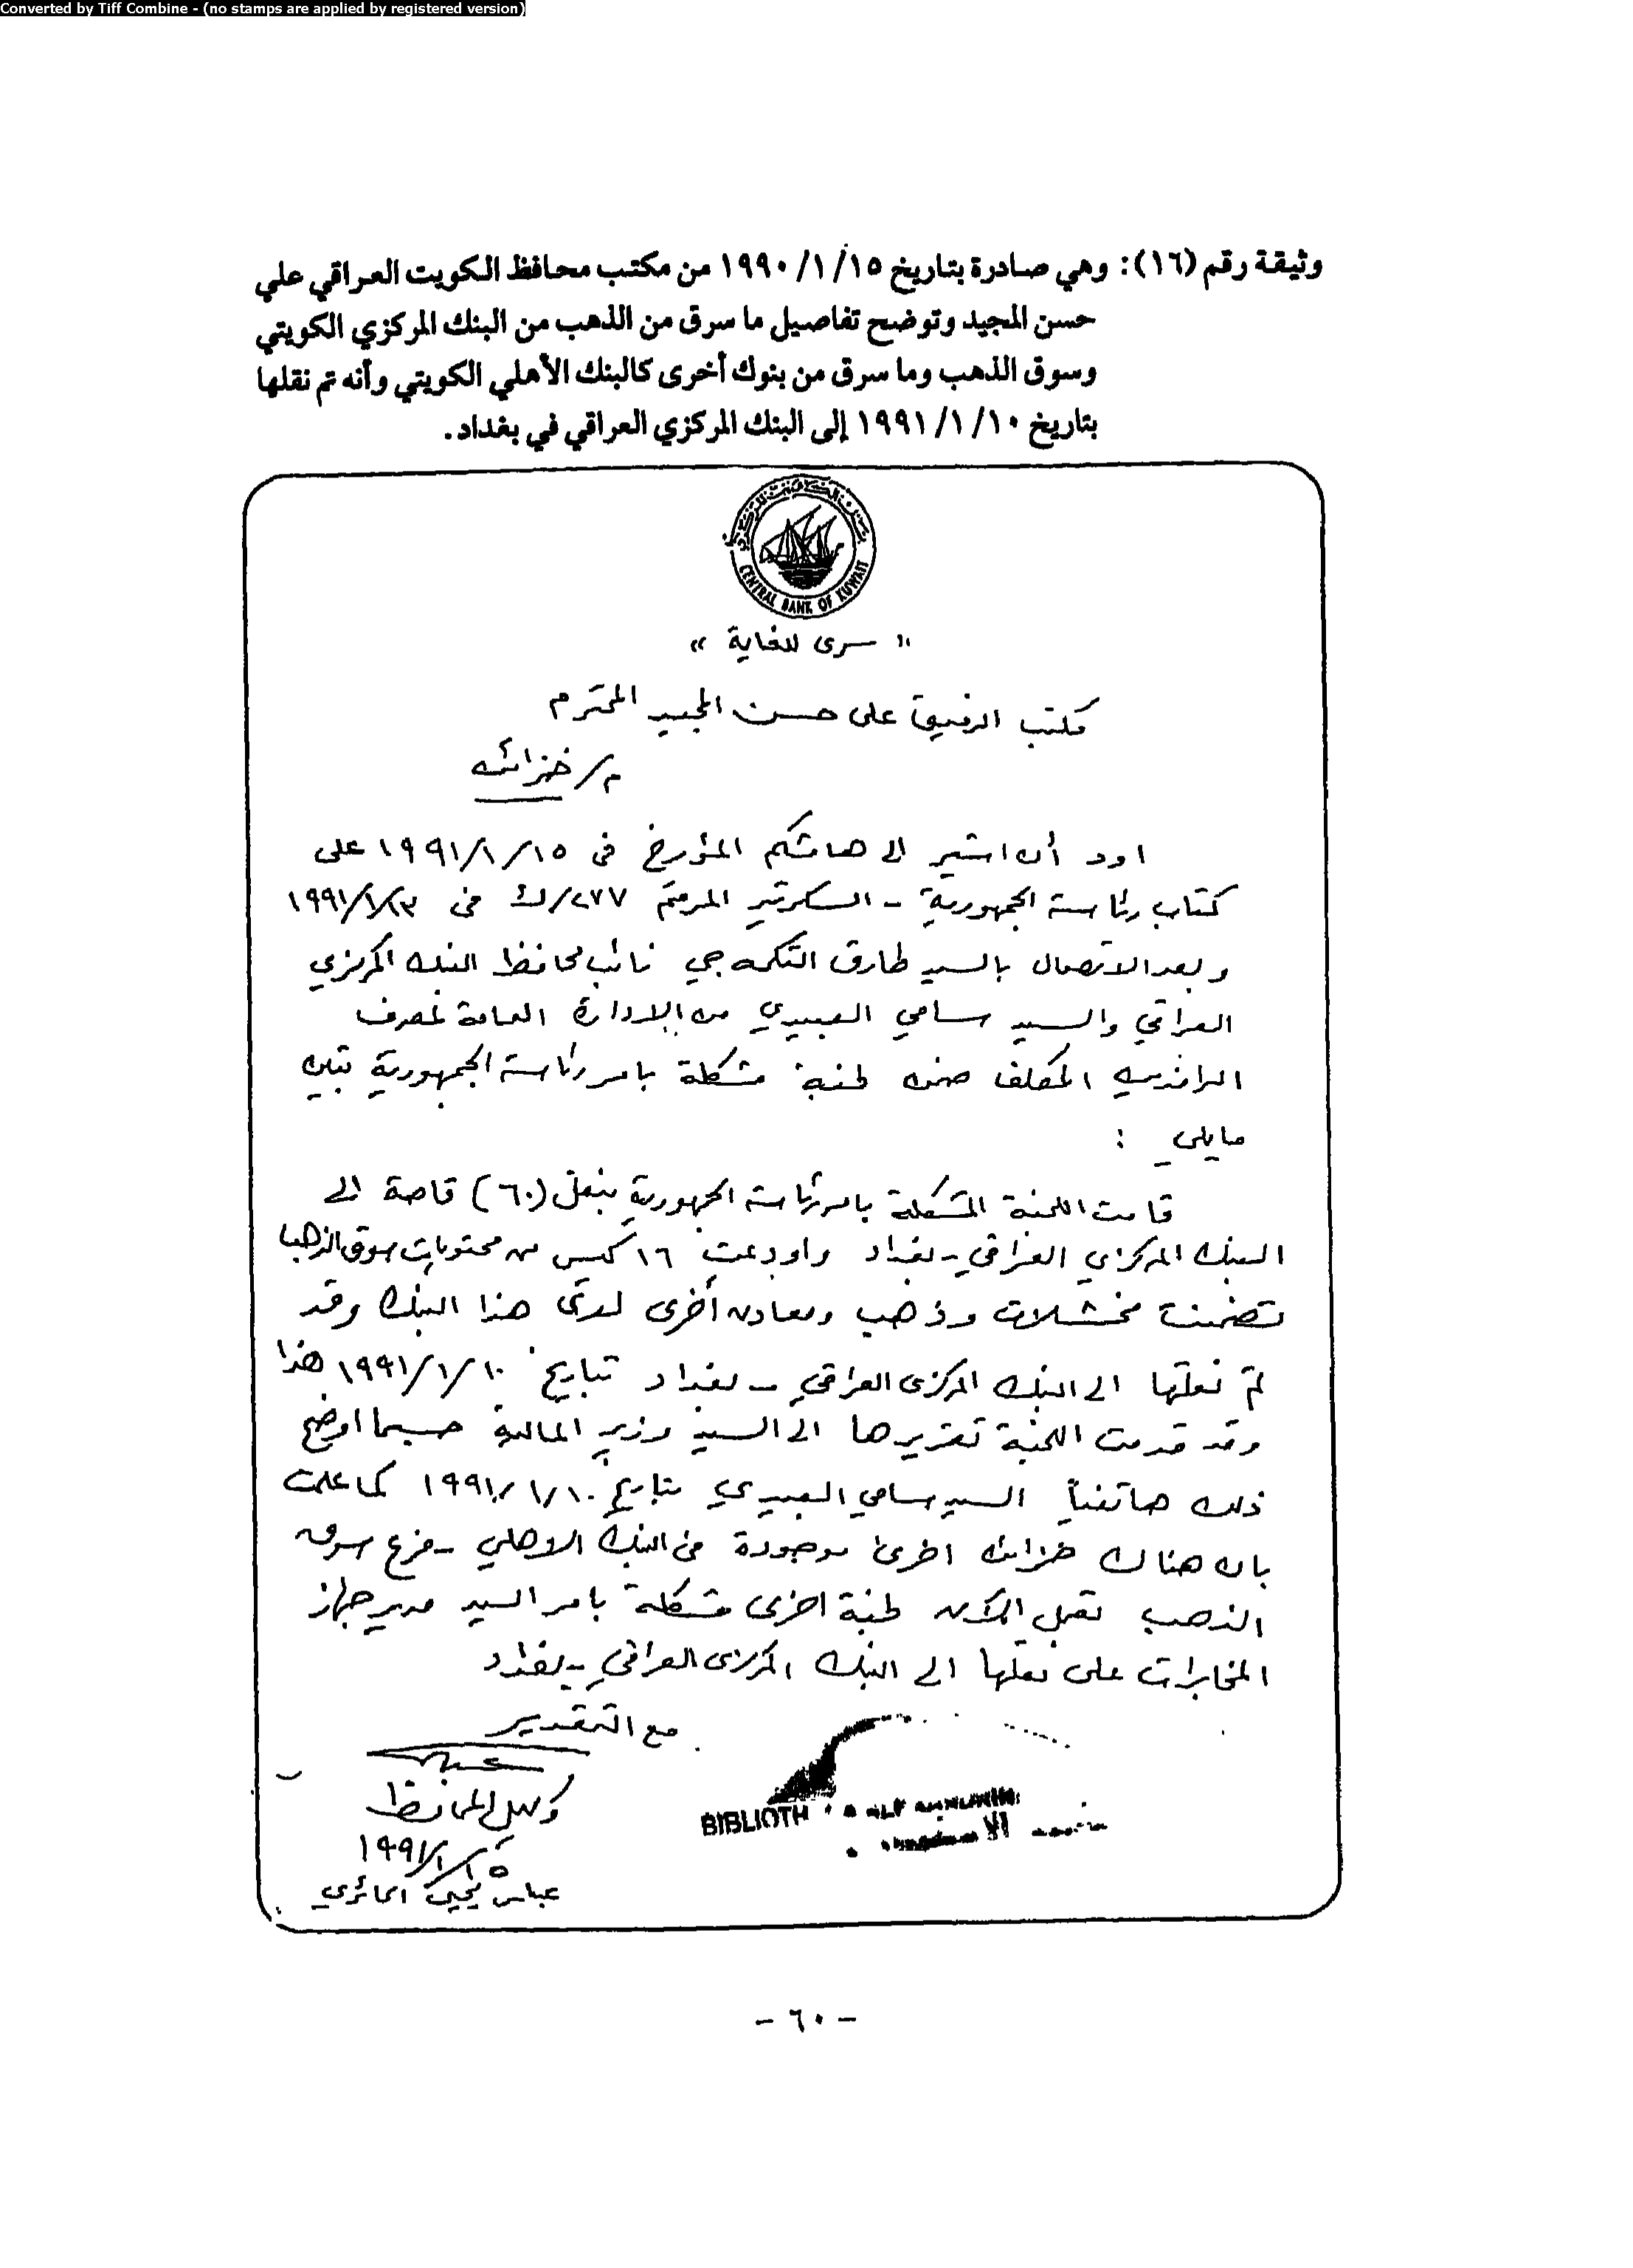 Converted by Tiff Combine - (no stamps are applied by registered version)
وثيقة رقم (١٦): وهي صادرة بتاريخ ١٥/١/١٩٩٠ من مكتب محافظ الكويت العراقي علي
حسن المجيد وتوضح تفاصيل ما سرق من الذهب من البنك المركزي الكويتي
وسوق الذهب وما سرق من بنوك أخرى كالبنك الأهلي الكويتي وأنه تم نقلها
بتاريخ ١٠/١/١٩٩١ إلى البنك المركزي العراقي في بغداد.
CENTRAL BANK OF KUWAIT
" سرى للغاية "
مكتب الرفيق على حسن المجيد المحترم
م/ خزائن
اود أن اشير الى هامشكم المؤرخ فى ١٥/١/١٩٩١ على
كتاب رئاسة الجمهورية - السكرتير المرقم ٢٧٧/ك فى ١٩٩١/١/١٣
وبعد الاتصال بالسيد طارق التكمه جي نائب محافظ البنك المركزي
العراقي والسيد سامي العبيدي من الادارة العامة لمصرف
الرافدين المكلف ضمن لجنة مشكلة بامر رئاسة الجمهورية تبين
مايلي :
قامت اللجنة المشكلة بامر رئاسة الجمهورية بنقل (٦٠) قاصة الى
البنك المركزي العراقي - بغداد واودعت ١٦ كيس من محتويات سوق الذهب
تضمنت مخشلات وذهب ومعادن أخرى لدى هذا البنك وقد
تم نقلها الى البنك المركزى العراقي - بغداد بتاريخ ١٠/١/١٩٩١ هذا
وقد قدمت اللجنة تقريرها الى السيد وزير المالية حسبما اوضح
ذلك هاتفياً السيد سامي العبيدي بتاريخ ١٠/١/١٩٩١ كما علمت
بان هناك خزائن اخرى موجودة فى البنك الاهلي - فرع سوق
الذهب تعمل الآن لجنة اخرى مشكلة بامر السيد مدير جهاز
المخابرات على نقلها الى البنك المركزى العراقي - بغداد
مع التقدير
وكيل المحافظ
١٥/١/١٩٩١
عباس يحيى الحائري
BIBLIOTH
- ٦٠ -